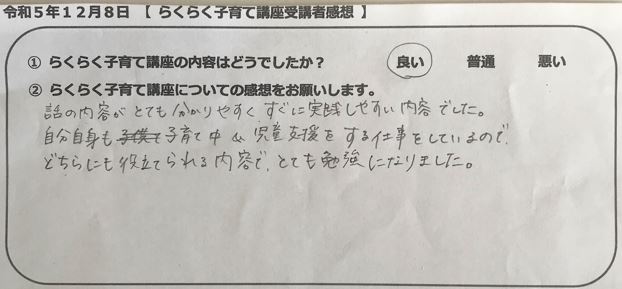 令和5年12月8日 【 らくらく子育て講座受講者感想 】
① らくらく子育て講座の内容はどうでしたか？ 良い 普通 悪い
② らくらく子育て講座についての感想をお願いします。
話の内容がとても分かりやすくすぐに実践しやすい内容でした。
自分自身も子育て中 & 児童支援をする仕事をしているので、
どちらにも役立てられる内容で、とても勉強になりました。